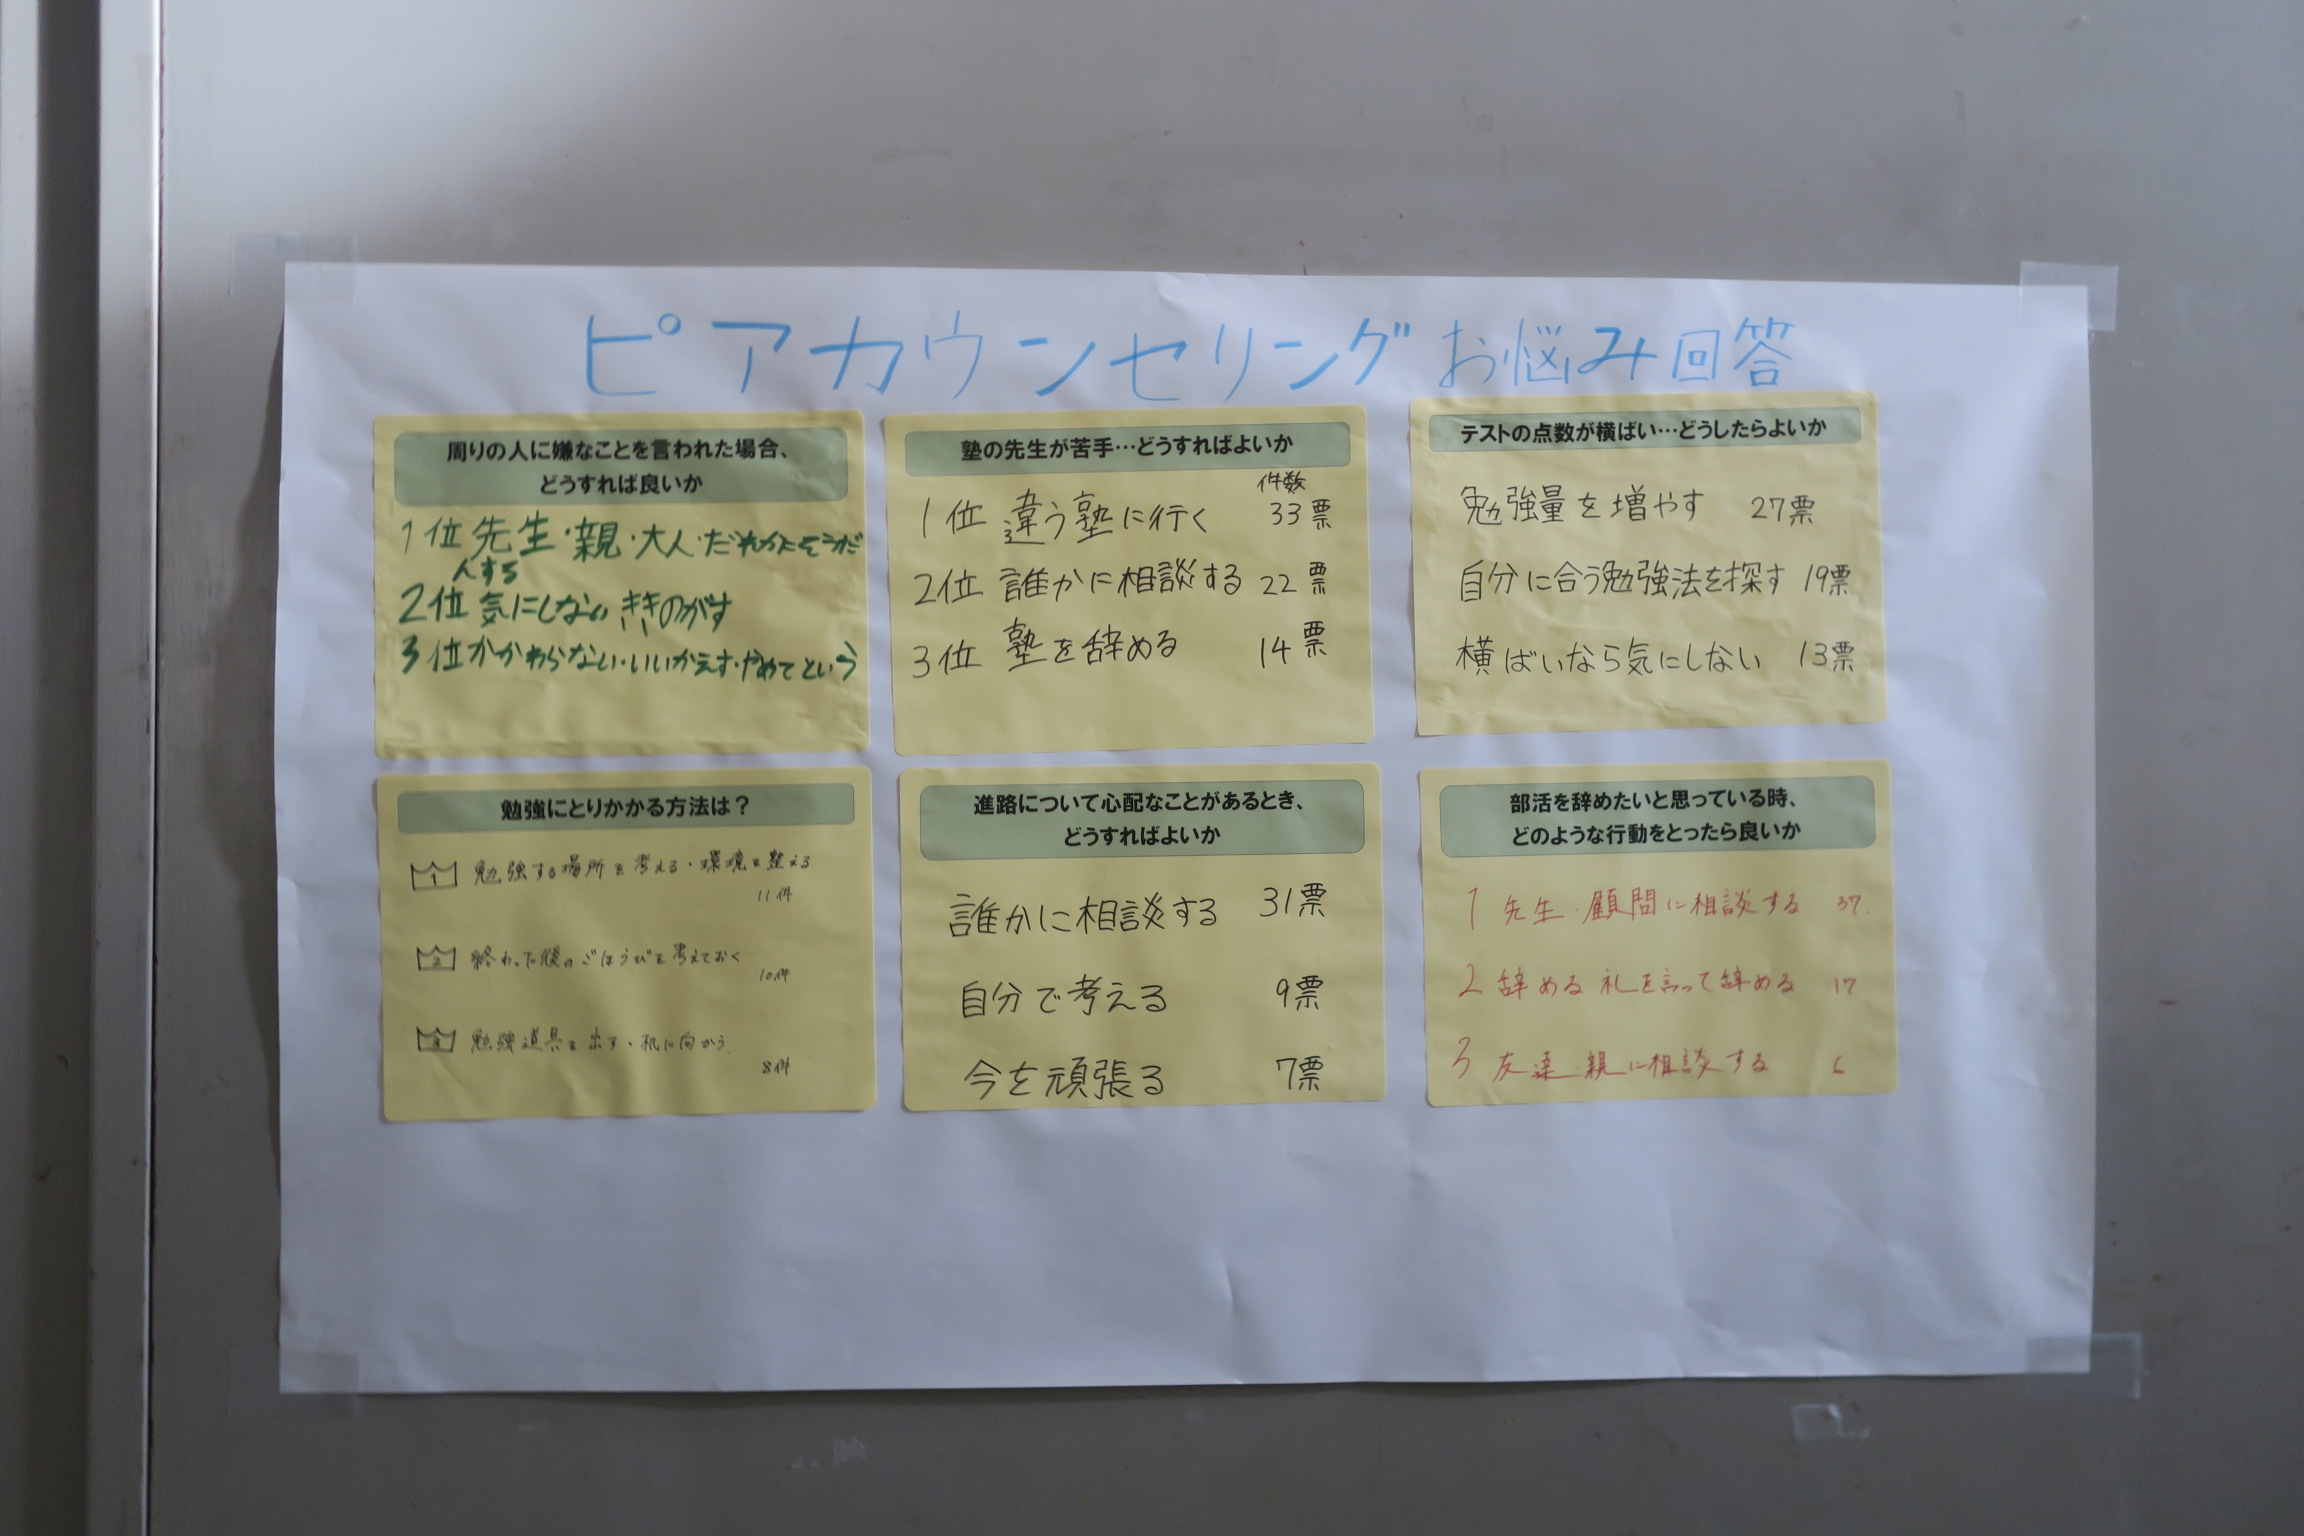 ピアカウンセリングお悩み回答
周りの人に嫌なことを言われた場合、
どうすれば良いか
1位 先生・親・大人・だれかにそうだ
んする
2位 気にしない ききのがす
3位 かかわらない・いいかえす・やめてという
塾の先生が苦手…どうすればよいか
件数
1位 違う塾に行く 33票
2位 誰かに相談する 22票
3位 塾を辞める 14票
テストの点数が横ばい…どうしたらよいか
勉強量を増やす 27票
自分に合う勉強法を探す 19票
横ばいなら気にしない 13票
勉強にとりかかる方法は？
1 勉強する場所を考える・環境を整える
11件
2 終わった後のごほうびを考えておく
10件
3 勉強道具を出す・机に向かう
8件
進路について心配なことがあるとき、
どうすればよいか
誰かに相談する 31票
自分で考える 9票
今を頑張る 7票
部活を辞めたいと思っている時、
どのような行動をとったら良いか
1 先生・顧問に相談する 37
2 辞める 礼を言って辞める 17
3 友達・親に相談する 6